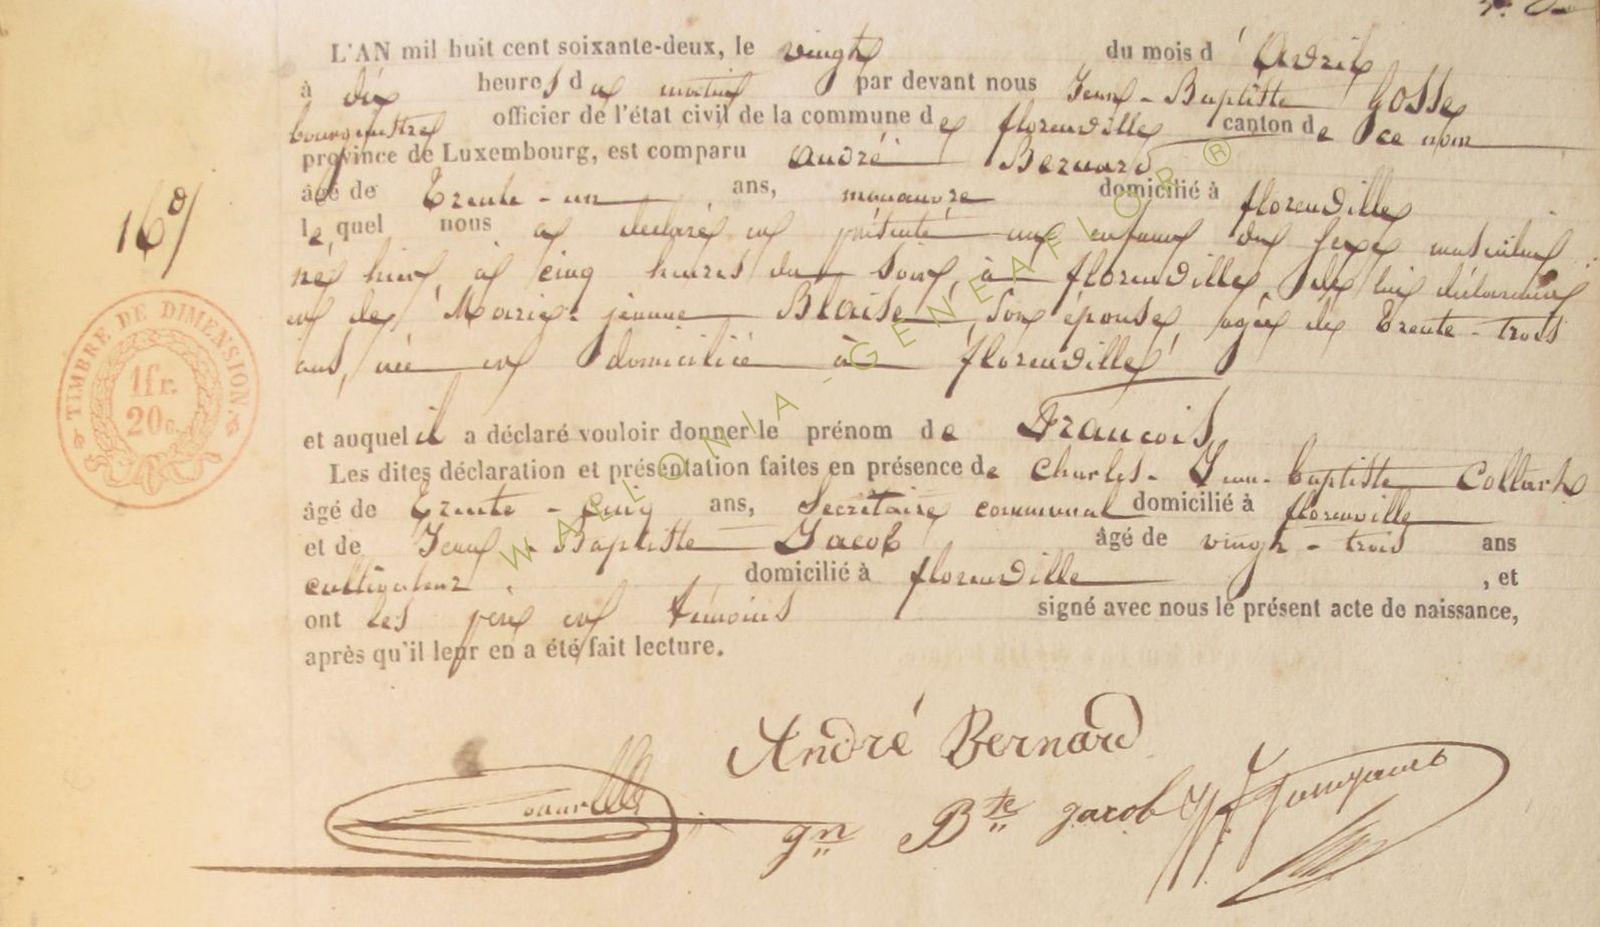 L'AN mil huit cent soixante-deux, le vingt du mois d'Avril
à dix heures du matin par devant nous Jean-Baptiste Gosse
bourgmestre officier de l'état civil de la commune de florenville canton de ce nom
province de Luxembourg, est comparu André Bernard
âgé de Trente-un ans, manœuvre domicilié à florenville
lequel nous a déclaré et présenté un enfant du sexe masculin
né hier, à cinq heures du soir, à florenville, de lui déclarant
et de Marie-jeanne Blaise, son épouse, agée de Trente-trois
ans, née et domiciliée à florenville,
16
TIMBRE DE DIMENSION.
1fr.
20c.
et auquel il a déclaré vouloir donner le prénom de François
Les dites déclaration et présentation faites en présence de Charles-Jean-baptiste Collart
âgé de Trente-cinq ans, Secrétaire communal domicilié à florenville
et de Jean-Baptiste Jacob âgé de vingt-trois ans
cultivateur domicilié à florenville, et
ont les père et témoins signé avec nous le présent acte de naissance,
après qu'il leur en a été fait lecture.
André Bernard
Jn Bte Jacob
WALLONIA-GENEAFLOR®